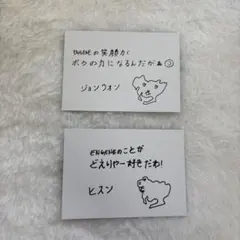 ENGENEの笑顔が
ボクの力になるんだがぁ
ジョンウォン
ENGENEのことが
どえりゃー好きだわ!
ヒスン